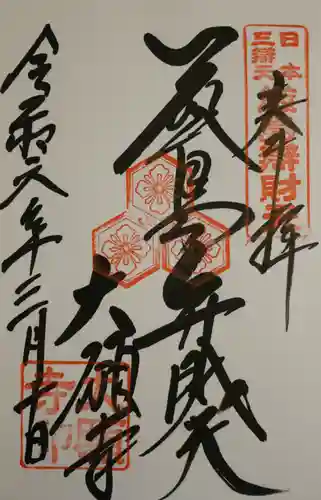 奉拝
日本三辯天
厳島弁財天
大願寺
令和六年三月十日